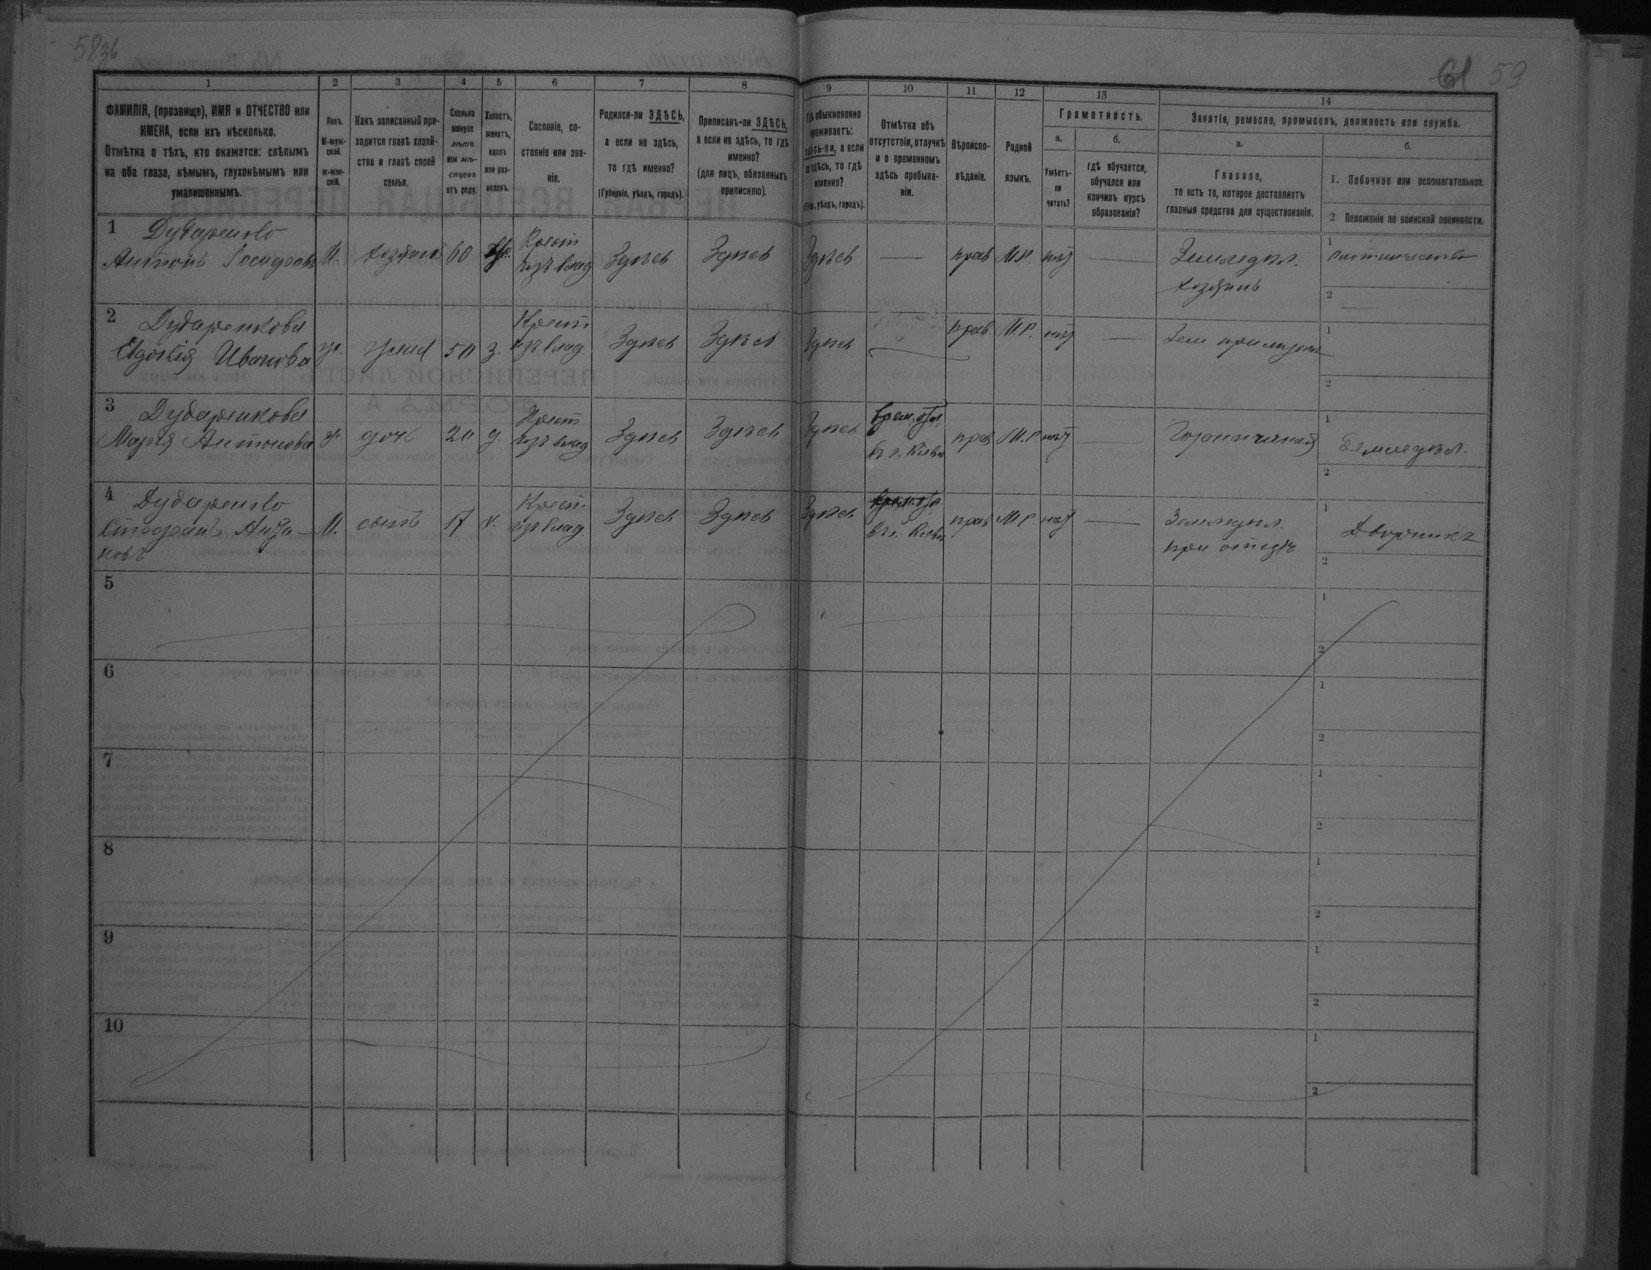 58 зв
61 59
1
2
3
4
5
6
7
8
9
10
11
12
13
14
ФАМИЛІЯ, (прозвище), ИМЯ и ОТЧЕСТВО или
ИМЕНА, если ихъ нѣсколько.
Отмѣтка о тѣхъ, кто окажется: слѣпымъ
на оба глаза, нѣмымъ, глухонѣмымъ или
умалишоннымъ.
Полъ.
М-муж-
ской.
ж-жен-
скій.
Какъ записанный при-
ходится главѣ хозяй-
ства и главѣ своей
семьи.
Сколько
минуло
лѣтъ
или мѣ-
сяцевъ
отъ роду.
Холостъ,
женатъ,
вдовъ
или раз-
веденъ.
Сословіе, со-
стояніе или зва-
ніе.
Родился-ли ЗДѢСЬ,
а если не здѣсь,
то гдѣ именно?
(Губернія, уѣздъ, городъ).
Приписанъ-ли ЗДѢСЬ,
а если не здѣсь, то гдѣ
именно?
(для лицъ, обязанныхъ
припискою).
Гдѣ обыкновенно
проживаетъ:
здѣсь-ли, а если
не здѣсь, то гдѣ
именно?
(Губ., уѣздъ, городъ).
Отмѣтка объ
отсутствіи, отлучкѣ
и о временномъ
здѣсь пребыва-
ніи.
Вѣроиспо-
вѣданіе.
Родной
языкъ.
Грамотность.
а.
Умѣетъ-
ли
читать?
б.
гдѣ обучается,
обучался или
кончилъ курсъ
образованія?
Занятіе, ремесло, промыселъ, должность или служба.
а.
Главное,
то есть то, которое доставляетъ
главныя средства для существованія.
б.
1. Побочное или вспомогательное.
2 Положеніе по воинской повинности.
1 Дубаренко
Антонъ М. хозяинъ 60 Крест. изъ влад Здѣсь Здѣсь Здѣсь — прав М.Р. нѣт — Земледѣл. хозяинъ 1 плотничество
2
2 Дубаренкова
Евдокія Иванова ж. жена 50 з. Крест. изъ влад. Здѣсь Здѣсь Здѣсь прав М.Р. нѣт — 1
2
3 Дубаренкова
Марія Антонова ж. дочь 20 д. Крест изъ влад Здѣсь Здѣсь Здѣсь въ г. Кіевѣ прав М.Р нѣт — Горничная 1 Земледѣл.
2
4 Дубаренко
Стефанъ Анто-
новъ М. сынъ 17 х. Крест. изъ влад. Здѣсь Здѣсь Здѣсь въ г. Кіевѣ прав М.Р нѣт — Земледѣл. при отцѣ 1 Дворникъ
2
5 1
2
6 1
2
7 1
2
8 1
2
9 1
2
10 1
2